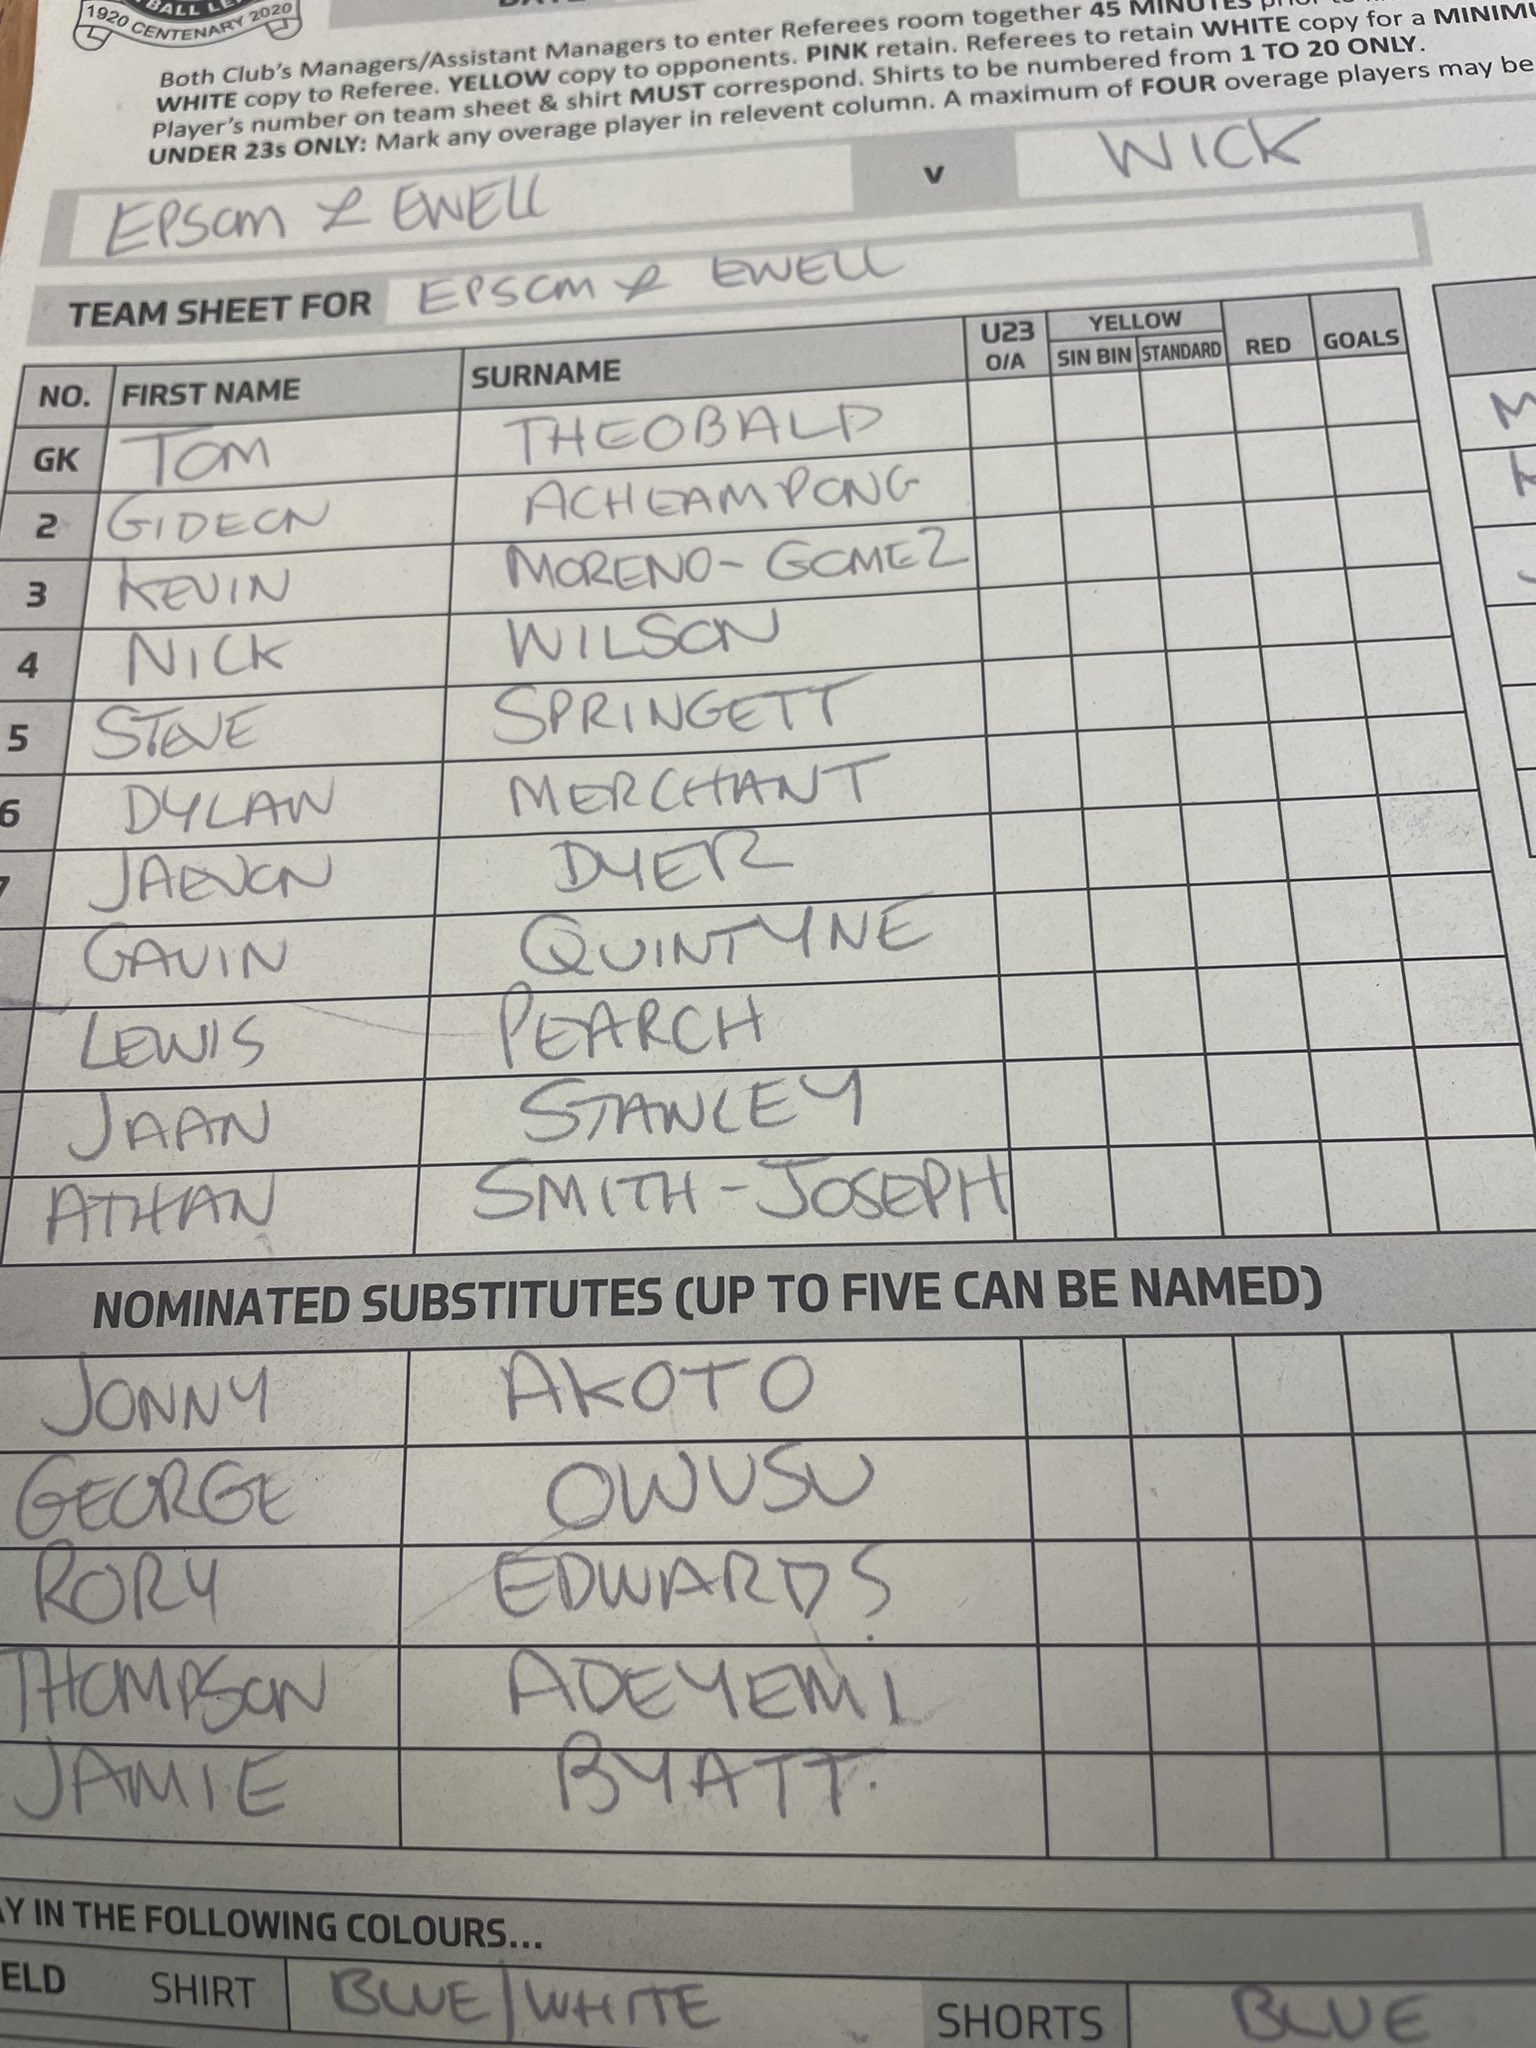 BALL LE
1920 CENTENARY 2020
Both Club's Managers/Assistant Managers to enter Referees room together 45 MINUTES prior to
WHITE copy to Referee. YELLOW copy to opponents. PINK retain. Referees to retain WHITE copy for a MINIMU
Player's number on team sheet & shirt MUST correspond. Shirts to be numbered from 1 TO 20 ONLY.
UNDER 23s ONLY: Mark any overage player in relevent column. A maximum of FOUR overage players may be
EPSOM & EWELL v WICK
TEAM SHEET FOR EPSOM & EWELL
NO. FIRST NAME SURNAME U23 O/A YELLOW SIN BIN STANDARD RED GOALS
GK TOM THEOBALD
2 GIDEON ACHEAMPONG
3 KEVIN MORENO-GOMEZ
4 NICK WILSON
5 STEVE SPRINGETT
6 DYLAN MERCHANT
7 JAEVON DYER
GAVIN QUINTYNE
LEWIS PEARCH
JAAN STANLEY
ATHAN SMITH-JOSEPH
NOMINATED SUBSTITUTES (UP TO FIVE CAN BE NAMED)
JONNY AKOTO
GEORGE OWUSU
RORY EDWARDS
THOMPSON ADEYEMI
JAMIE BYATT.
AY IN THE FOLLOWING COLOURS...
ELD SHIRT BLUE/WHITE SHORTS BLUE